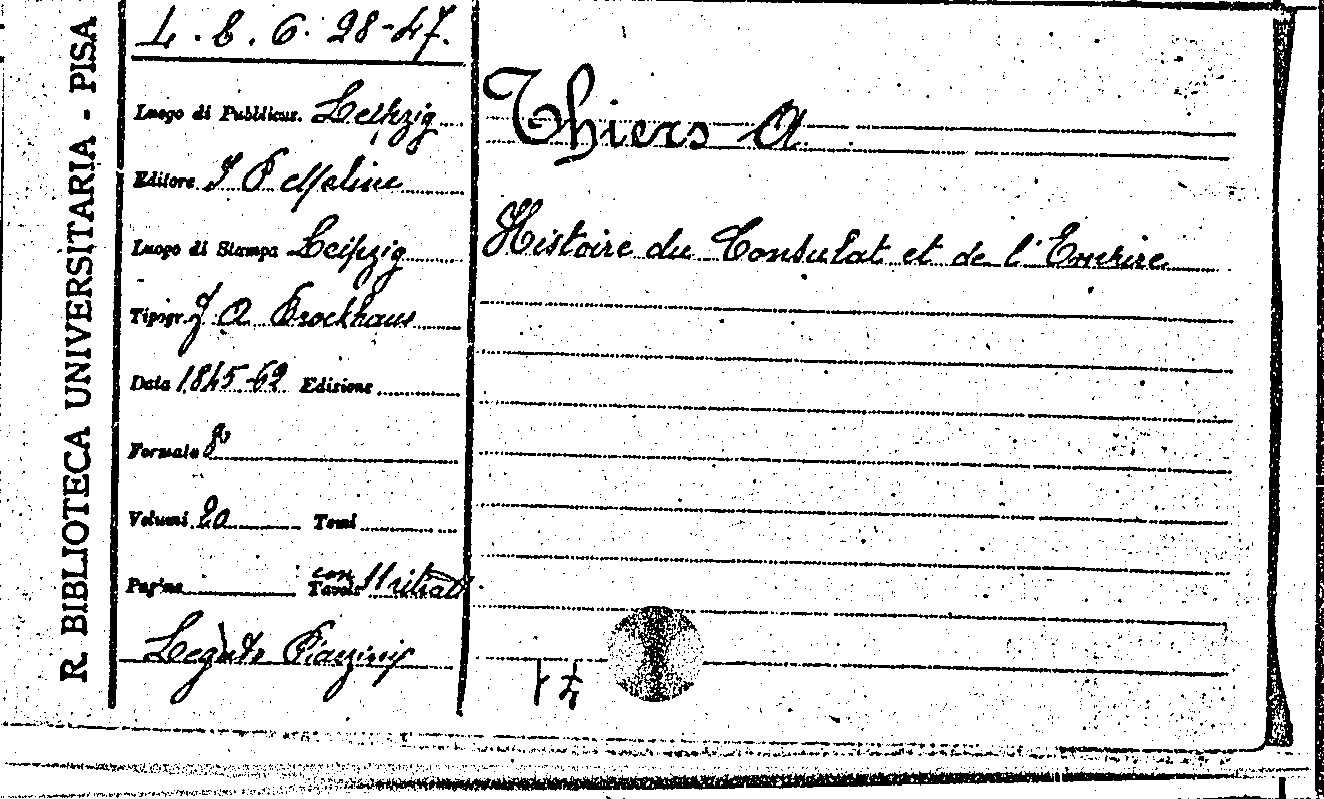 R. BIBLIOTECA UNIVERSITARIA - PISA
L. 8. 6. 28-47.
Luogo di Pubblicaz. Leipzig
Editore J P Meline
Luogo di Stampa Leipzig
Tipogr. F A Brockhaus
Data 1845-62 Edizione
Formato 8º
Volumi 20 Tomi
Pagine con Tavole 11 ritratti
Legato
Thiers A.
Histoire du Consulat et de l'Empire